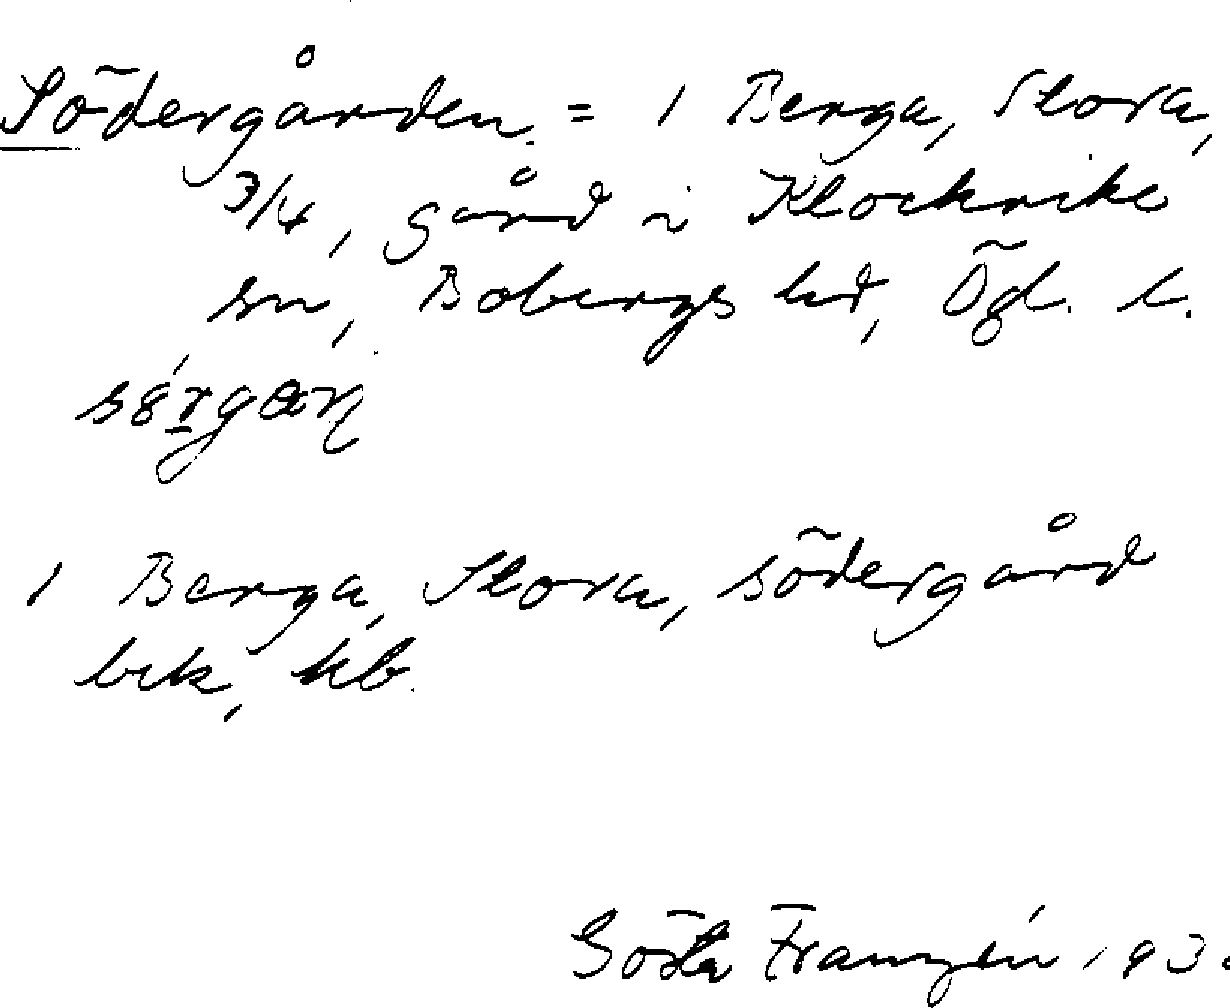 Södergården = 1 Berga, Stora,
3/4, gård i Klockrike
sn, Bobergs hd, Ögl. l.
1 Berga, Stora, södergård
brk, kb.
Gösta Franzén 193